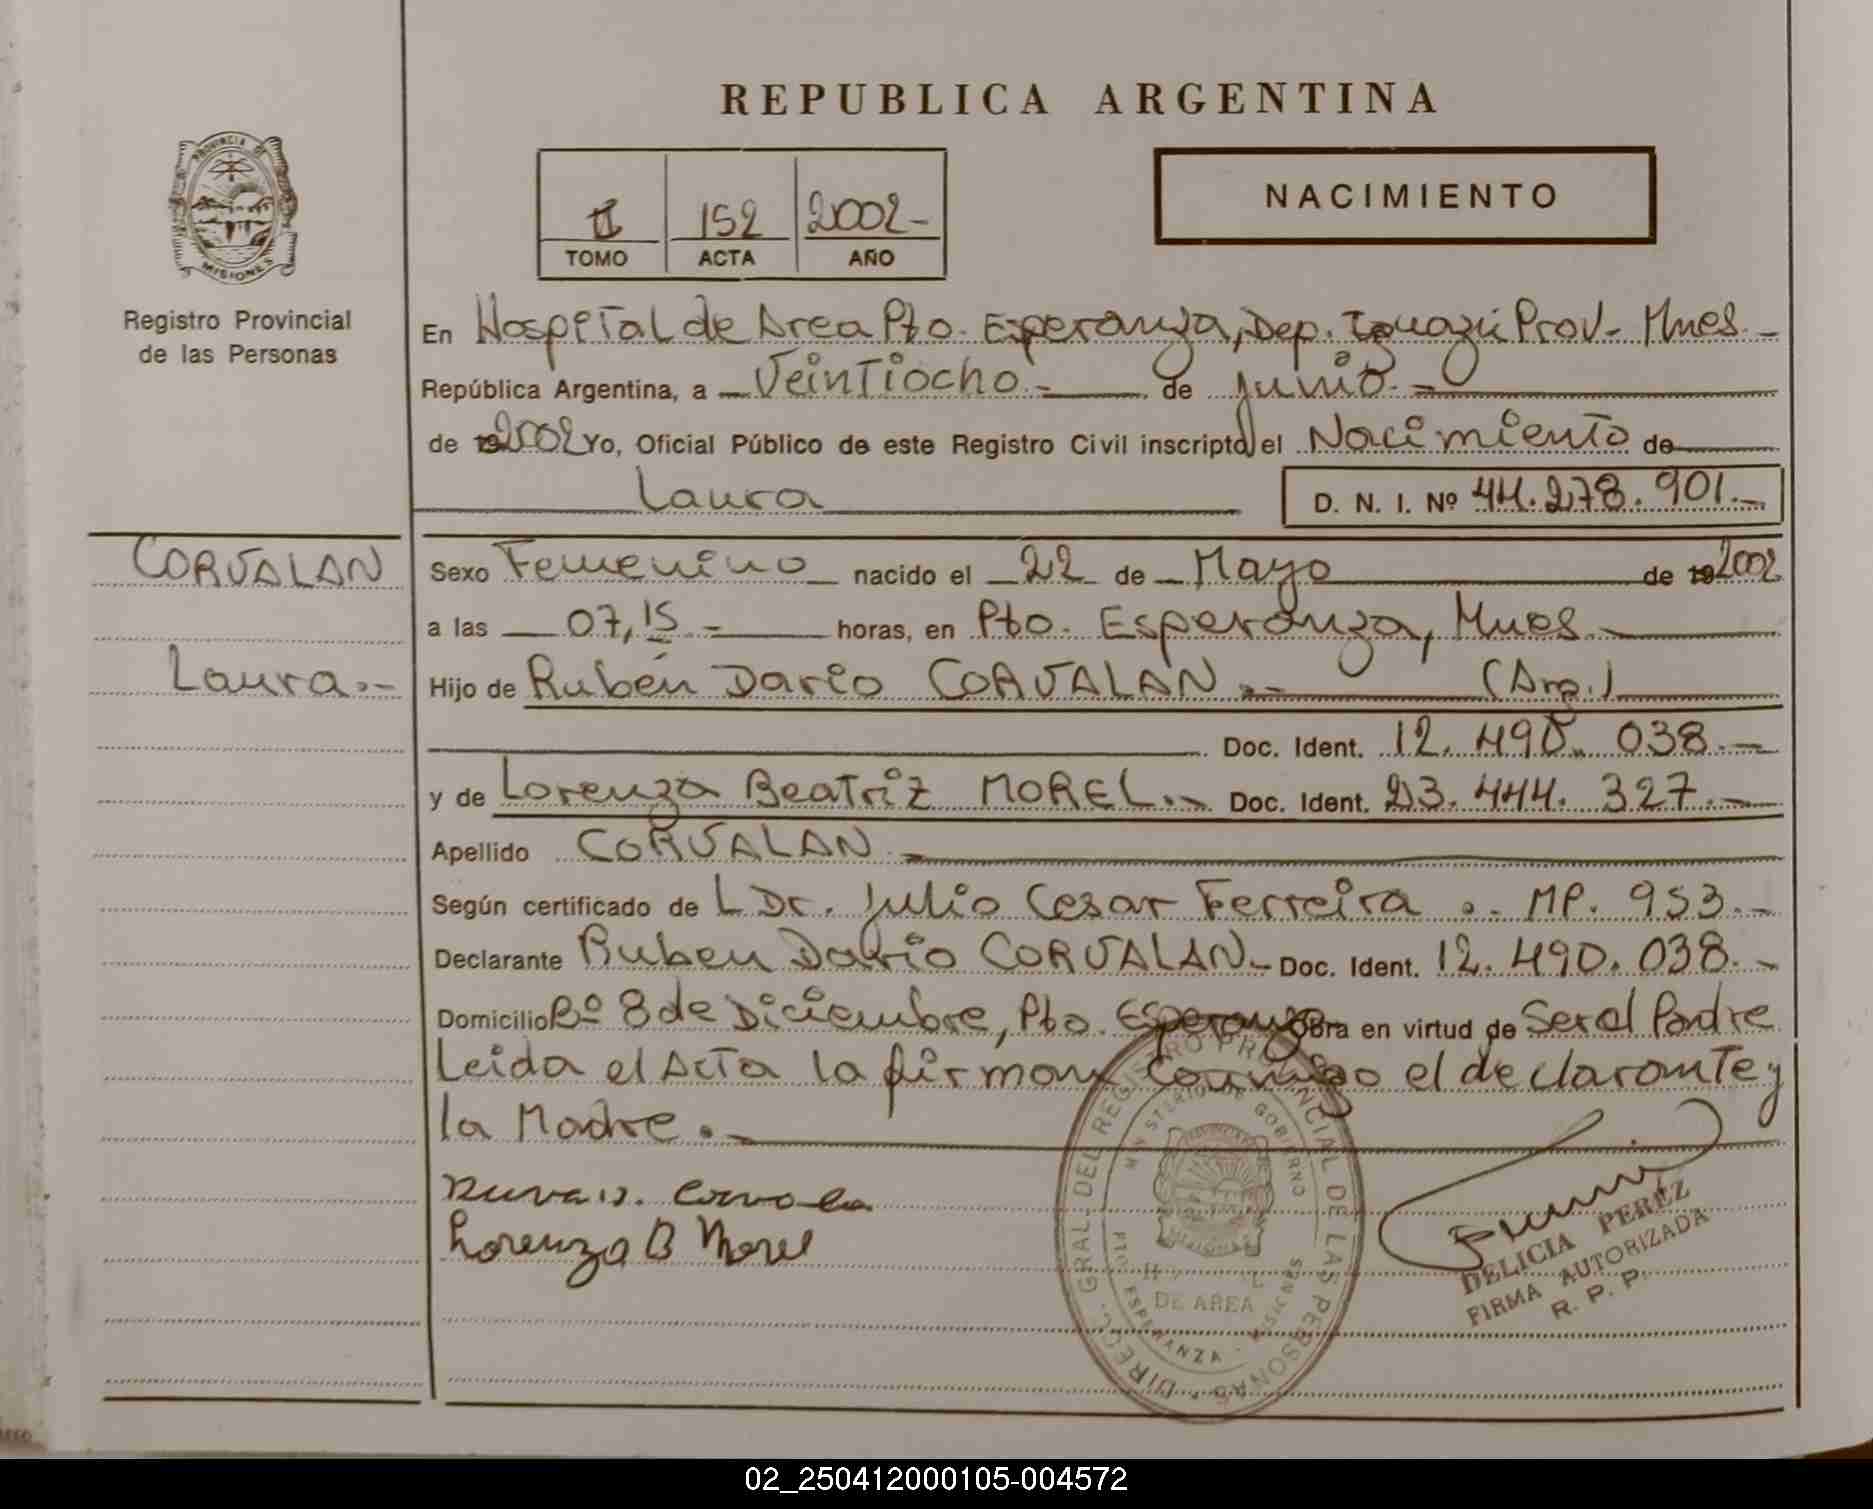 REPUBLICA ARGENTINA
PROVINCIA DE
MISIONES
Registro Provincial
de las Personas
II 152 2002-
TOMO ACTA AÑO
NACIMIENTO
En Hospital de Area Pto. Esperanza, Dep. Iguazú Prov- Mnes.-
República Argentina, a Veintiocho.- de junio.-
de 192002 Yo, Oficial Público de este Registro Civil inscripto el Nacimiento de
Laura D. N. I. Nº 44.278.901.-
CORVALAN
Laura.-
Sexo Femenino nacido el 22 de Mayo de 192002
a las 07,15.- horas, en Pto. Esperanza, Mnes.-
Hijo de Rubén Dario CORVALAN.- (Arg.)
Doc. Ident. 12.490.038.-
y de Lorenza Beatriz MOREL.- Doc. Ident. 23.444.327.-
Apellido CORVALAN.-
Según certificado de L Dr. Julio Cesar Ferreira .. MP. 953.-
Declarante Ruben Dario CORVALAN- Doc. Ident. 12.490.038.-
Domicilio Bº 8 de Diciembre, Pto. Esperanza Obra en virtud de Ser el Padre
Leida el Acta la firman conmigo el declarante y
la Madre.-
Lorenza B Morel
DIREC. GRAL. DEL REGISTRO PROVINCIAL DE LAS PERSONAS
MINISTERIO DE GOBIERNO
DE AREA
PTO. ESPERANZA - MISIONES
DELICIA PEREZ
FIRMA AUTORIZADA
R. P. P.
02_250412000105-004572